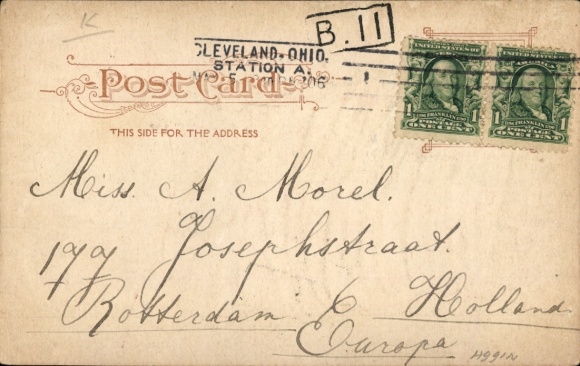 K
B.11
CLEVELAND, OHIO.
STATION A.
Post Card
THIS SIDE FOR THE ADDRESS
UNITED STATES OF
FRANKLIN
1 1
POSTAGE
ONE CENT
UNITED STATES OF
FRANKLIN
1 1
POSTAGE
ONE CENT
Miss. A. Morel.
177 Josephstraat.
Rotterdam Holland.
Europa